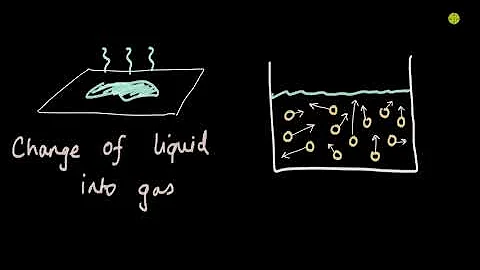 Change of liquid
into gas